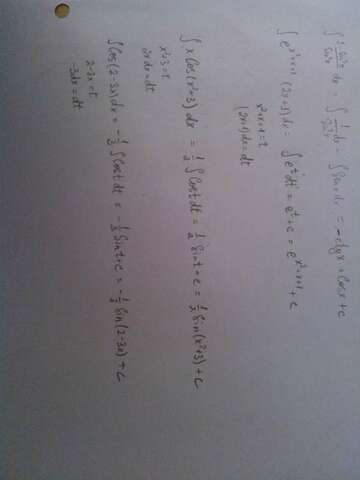 ∫ (1 - sin³x)/sin²x dx = ∫ 1/sin²x dx - ∫ sinx dx = -ctgx + cosx + c
∫ e^(x²+x+1) (2x+1) dx = ∫ e^t dt = e^t + c = e^(x²+x+1) + c
x²+x+1 = t
(2x+1) dx = dt
∫ x cos(x²+3) dx = 1/2 ∫ cost dt = 1/2 sint + c = 1/2 sin(x²+3) + c
x²+3 = t
2x dx = dt
∫ cos(2-3x) dx = -1/3 ∫ cost dt = -1/3 sint + c = -1/3 sin(2-3x) + c
2-3x = t
-3dx = dt